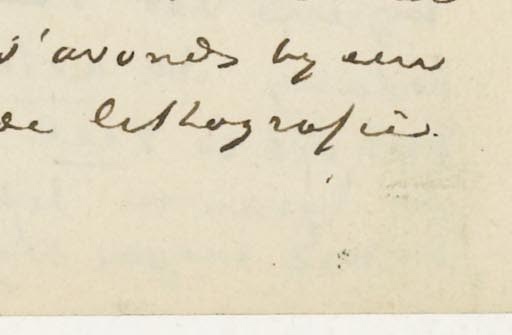 s'avonds by een
de lithografie.